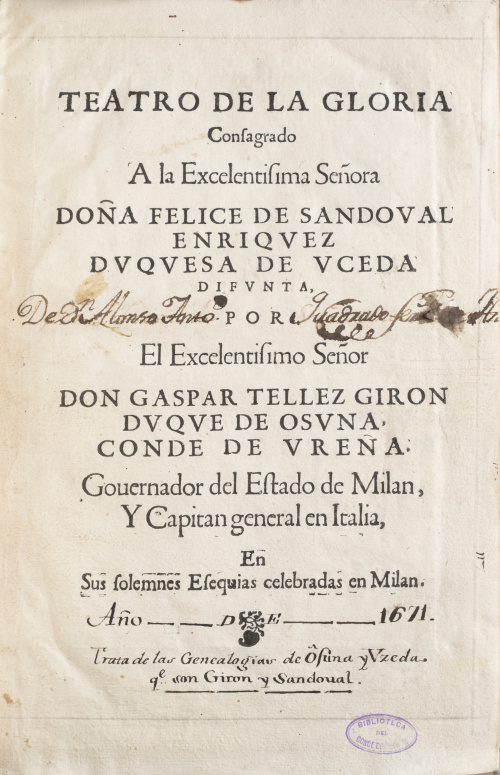 TEATRO DE LA GLORIA
Consagrado
A la Excelentiſima Señora
DOÑA FELICE DE SANDOVAL
ENRIQVEZ
DVQVESA DE VCEDA
DIFVNTA,
De Dn Alonso Anto. POR Quadrado
El Excelentiſimo Señor
DON GASPAR TELLEZ GIRON
DVQVE DE OSVNA,
CONDE DE VREÑA.
Gouernador del Eſtado de Milan,
Y Capitan general en Italia,
En
Sus ſolemnes Eſequias celebradas en Milan.
Año DE 1671.
Trata de las Genealogias de Osuna y Vzeda
qe son Giron y Sandoval.
BIBLIOTECA
DEL
CONDE DE